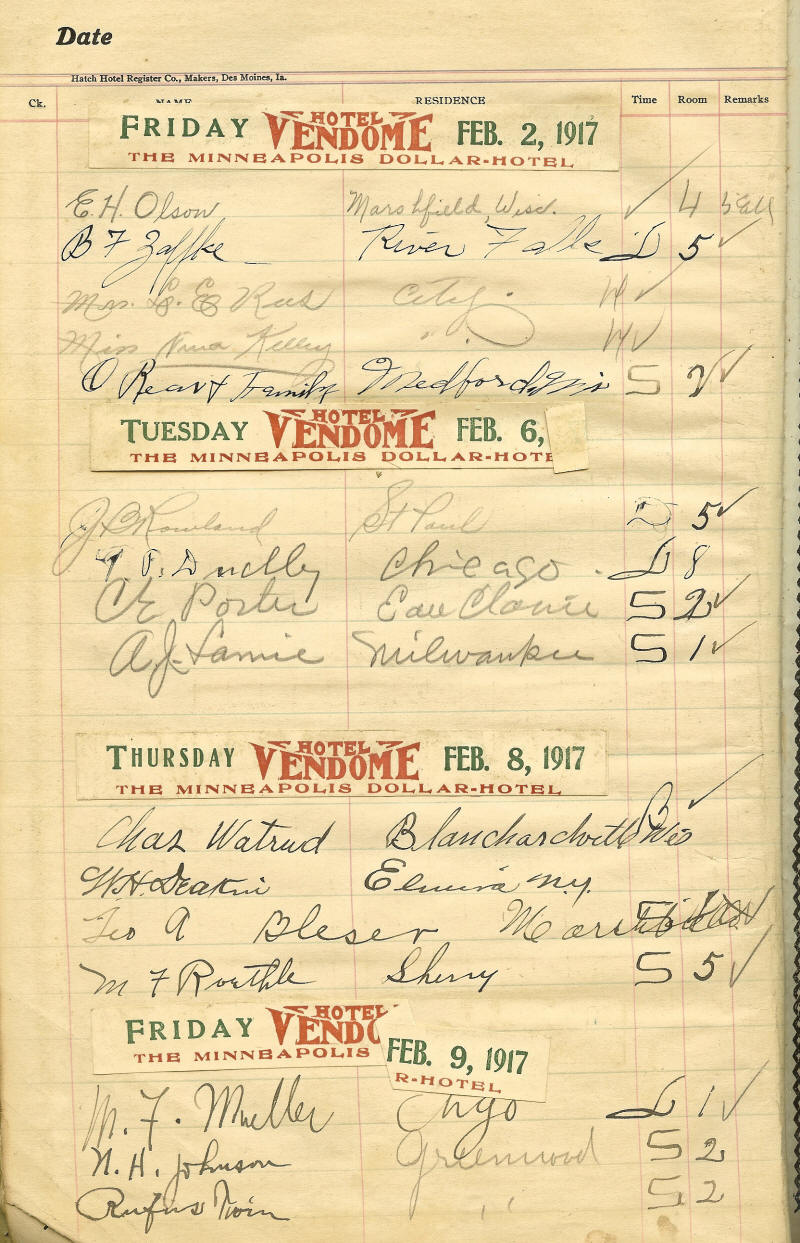 Date
Hatch Hotel Register Co., Makers, Des Moines, Ia.
Ck. NAME RESIDENCE Time Room Remarks
FRIDAY HOTEL VENDOME FEB. 2, 1917
THE MINNEAPOLIS DOLLAR-HOTEL
E. H. Olson Marshfield, Wisc. ✓ 4
B F Zaffke River Falls D 5 ✓
Mrs. L. E Rus City. ✓
Miss Nina Kelley " ✓
O Rear & Family Medford Wis S 2 ✓
TUESDAY HOTEL VENDOME FEB. 6,
THE MINNEAPOLIS DOLLAR-HOTE
J B Rowland St Paul D 5 ✓
Chicago D 8
CE Porter Eau Claire S 2 ✓
A. J. Lamie Milwaukee S 1 ✓
THURSDAY HOTEL VENDOME FEB. 8, 1917
THE MINNEAPOLIS DOLLAR-HOTEL
Chas Watrud Blanchardville Wis B ✓
W. H. Deakin Elmira N.Y.
Geo A Bleser
M F Roethle Sherry S 5 ✓
FRIDAY HOTEL VENDO FEB. 9, 1917
THE MINNEAPOLIS R-HOTEL
M. F. Mueller Chgo D 1 ✓
N. H. Johnson Greenwood S 2
Rufus " S 2